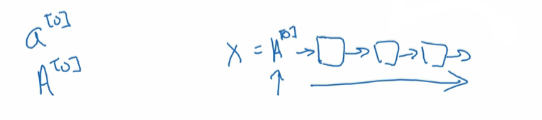 a^[0]
A^[0]
X = A^[0] → □ → □ → □ →